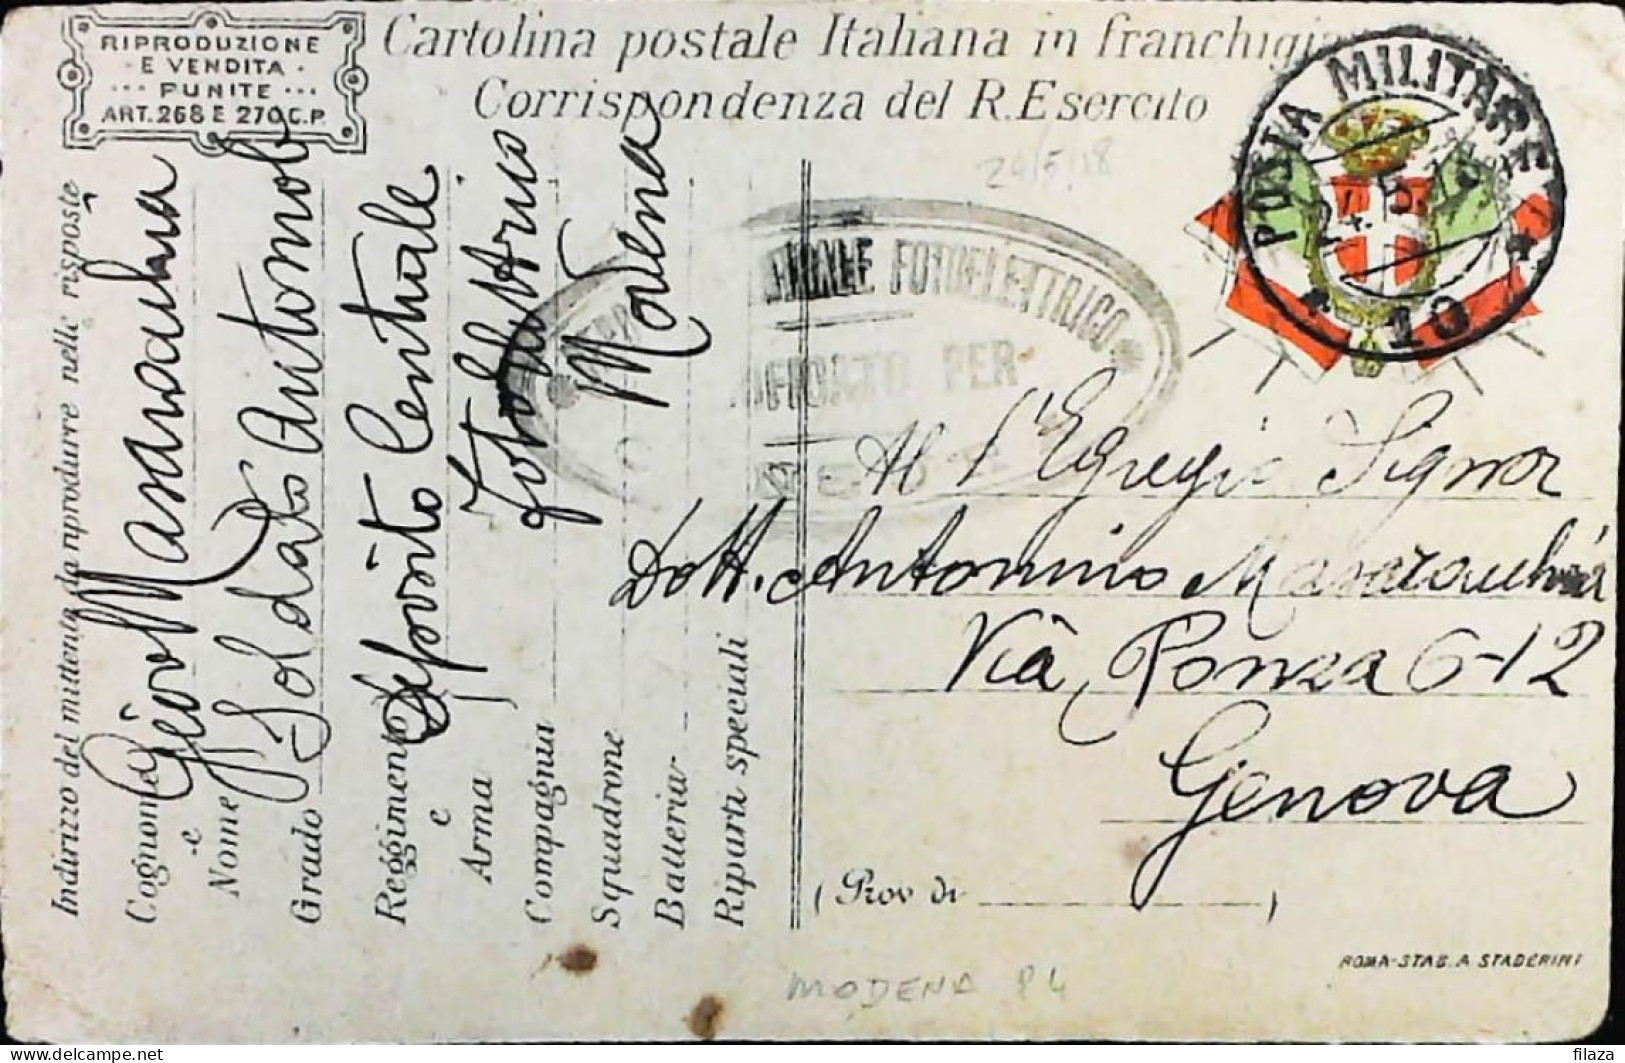 RIPRODUZIONE
E VENDITA
PUNITE
ART. 268 E 270 C.P.
Cartolina postale Italiana in franchigia
Corrispondenza del R. Esercito
24/5/18
POSTA MILITARE
10
FOTOELETTRICO
PER
Al l'Egregio Signor
Dott. Antonino
Via Ponza 6-12
Genova
(Prov di )
ROMA-STAB. A STADERINI
MODENA P4
Indirizzo del mittente da riprodurre nelle risposte
Cognome
e
Nome
Soldato Automob
Grado
Deposito Centrale
Reggimento
e
Arma
Fotoelettrico
Compagnia
Modena
Squadrone
Batteria
Riparti speciali
filaza